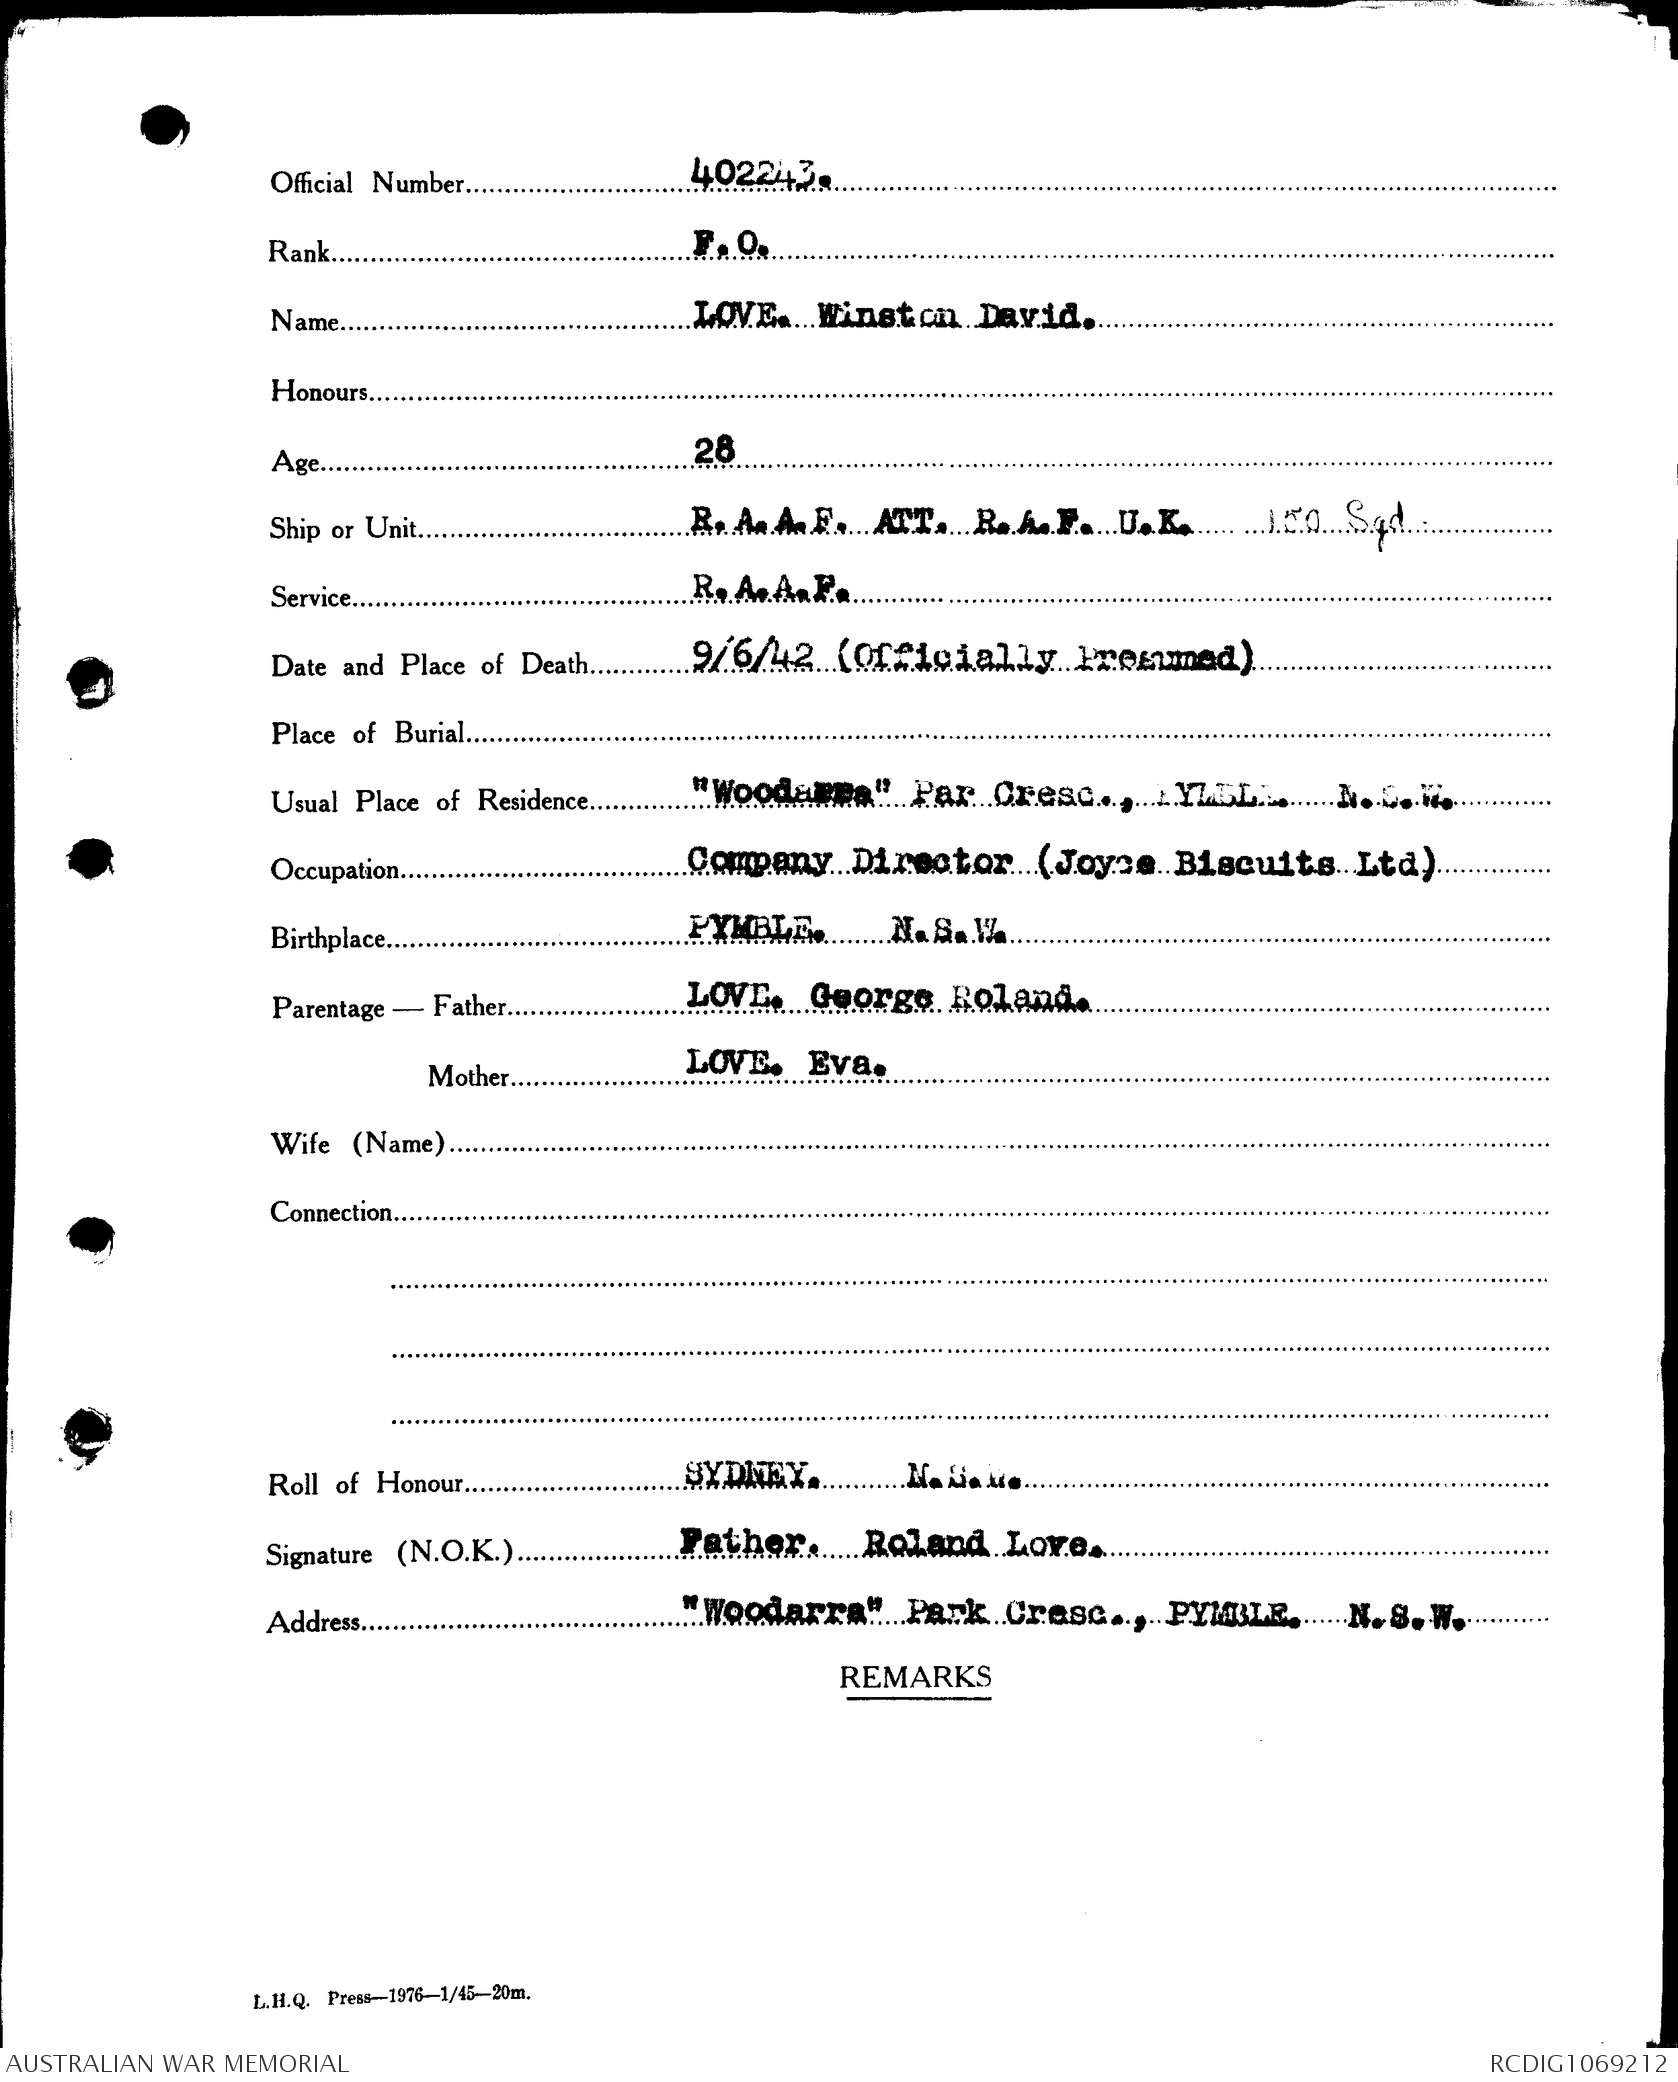 Official Number 402243.
Rank F.O.
Name LOVE. Winston David.
Honours
Age 28
Ship or Unit R.A.A.F. ATT. R.A.F. U.K. 150 Sqd.
Service R.A.A.F.
Date and Place of Death 9/6/42 (Officially Presumed)
Place of Burial
Usual Place of Residence "Woodarra" Par Cresc., PYMBLE. N.S.W.
Occupation Company Director (Joyce Biscuits Ltd)
Birthplace PYMBLE. N.S.W.
Parentage — Father LOVE. George Roland.
Mother LOVE. Eva.
Wife (Name)
Connection
Roll of Honour SYDNEY. N.S.W.
Signature (N.O.K.) Father. Roland Love.
Address "Woodarra" Park Cresc., PYMBLE. N.S.W.
REMARKS
L.H.Q. Press—1976—1/45—20m.
AUSTRALIAN WAR MEMORIAL RCDIG1069212